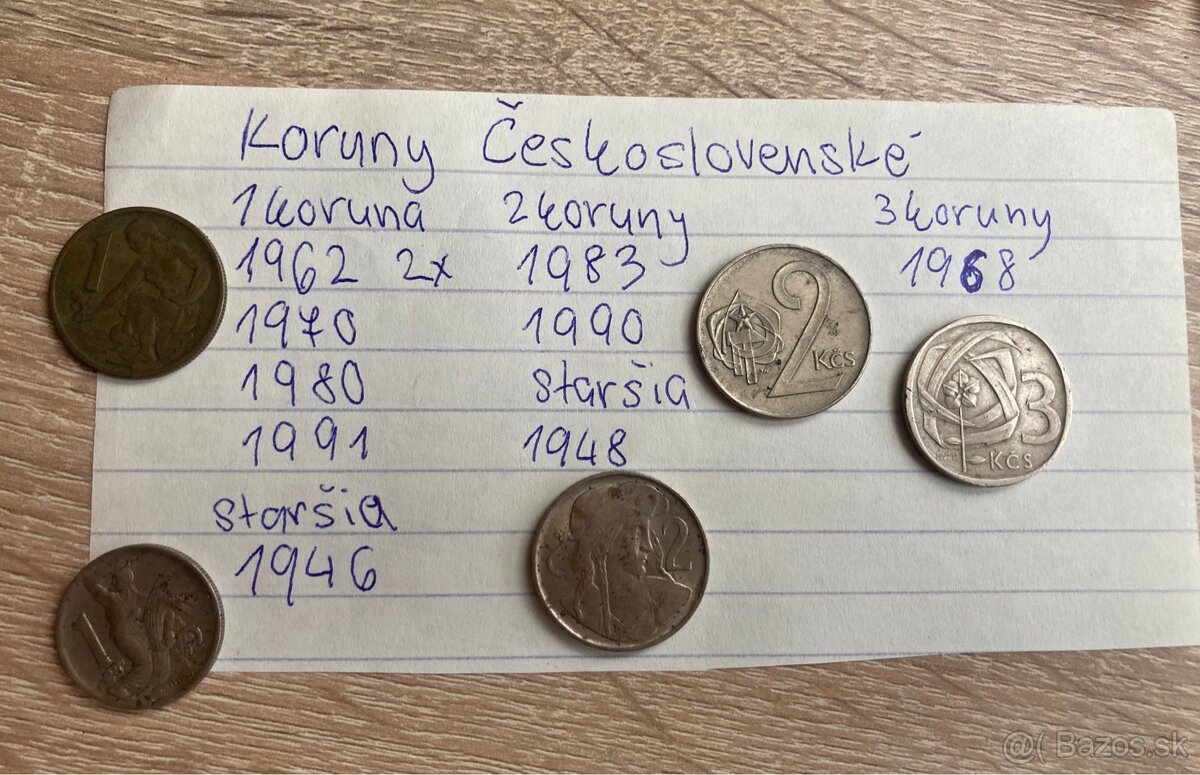 Koruny Československé
1 koruna
1962 2x
1970
1980
1991
staršia
1946
2 koruny
1983
1990
staršia
1948
3 koruny
1968
1
1
2
KČS
2
3
KČS
@( Bazos.sk